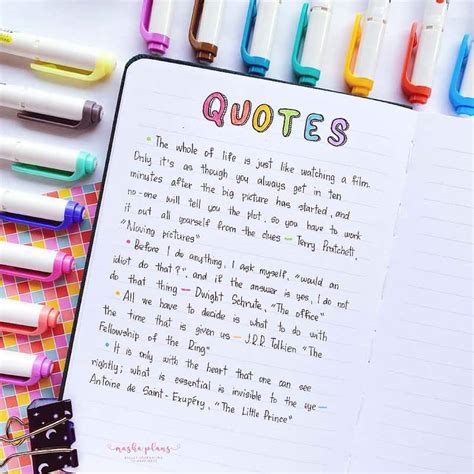 QUOTES
• The whole of life is just like watching a film.
Only it's as though you always get in ten
minutes after the big picture has started, and
no-one will tell you the plot, so you have to work
it out all yourself from the clues — Terry Pratchett,
"Moving pictures"
• Before I do anything, I ask myself, "would an
idiot do that?", and if the answer is yes, I do not
do that thing — Dwight Schrute, "The office"
• All we have to decide is what to do with
the time that is given us — J.R.R. Tolkien "The
Fellowship of the Ring"
• It is only with the heart that one can see
rightly; what is essential is invisible to the eye —
Antoine de Saint-Exupéry, "The Little Prince"
masha plans